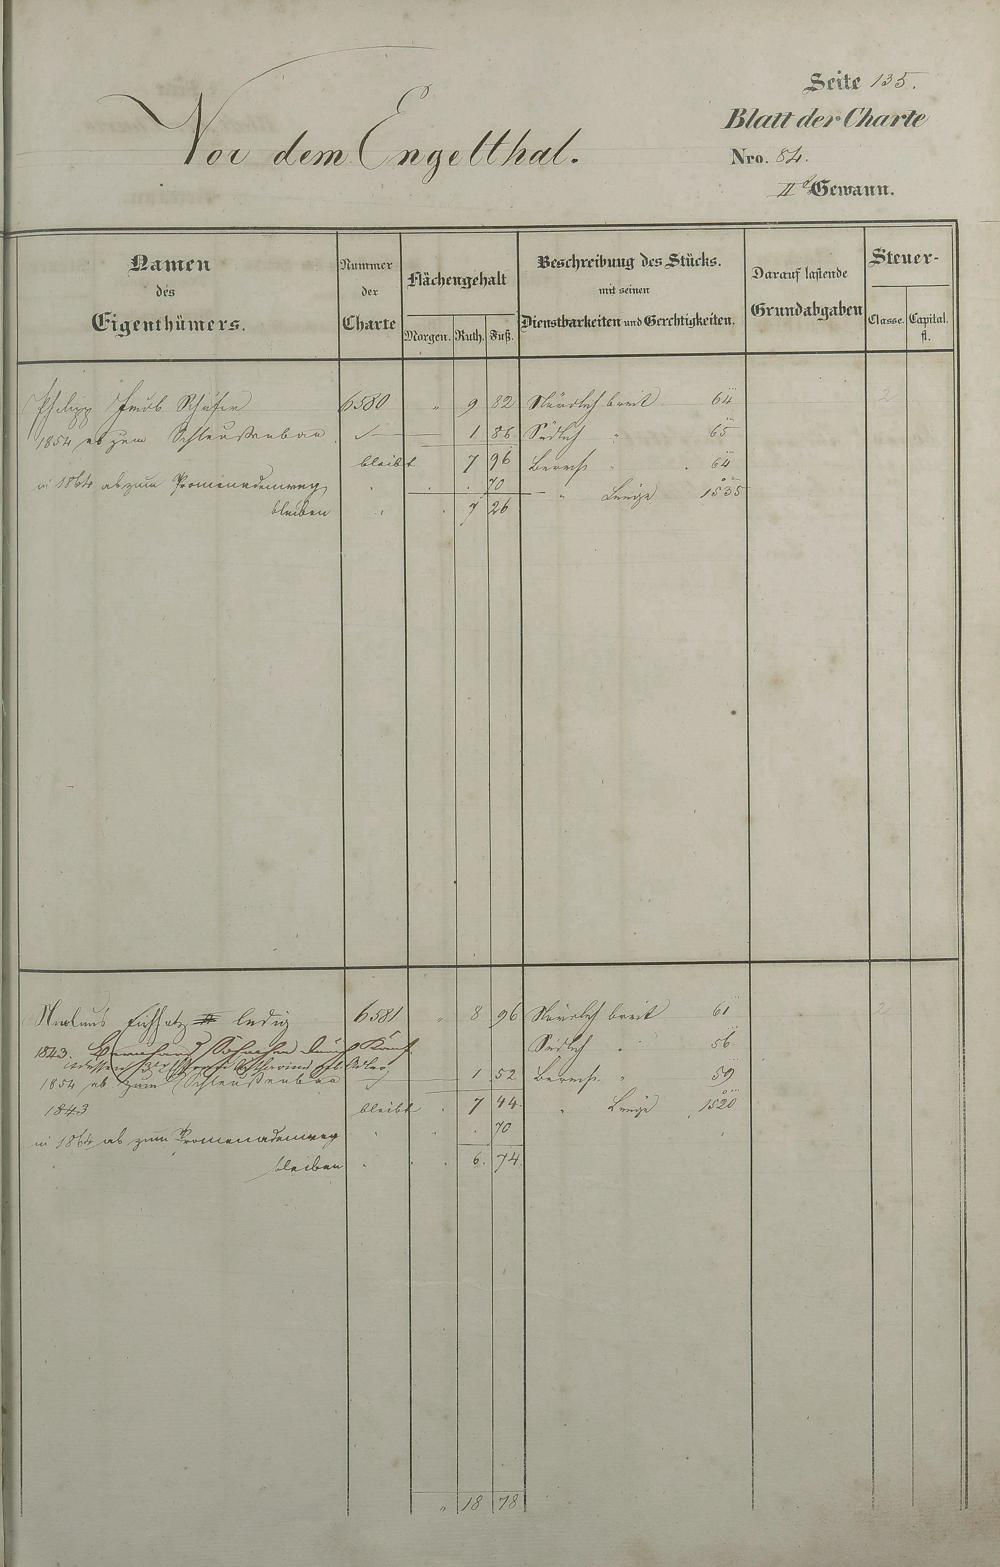 Vor dem Engelthal.
Seite 135.
Blatt der Charte
Nro. 84.
II Gewann.
Namen des Eigenthümers.
Nummer der Charte
Flächengehalt
Morgen. Ruth. Fuß.
Beschreibung des Stücks.
mit seinen
Dienstbarkeiten und Gerechtigkeiten.
Darauf lastende
Grundabgaben
Steuer-
Classe. Capital. fl.
Philipp Jacob Schäfer 6580 " 9 82 Nördlich breit 64 2
1854 ab zum Schleußenbau 1 86 Südlich " 65
bleibt 7 96 Berech. " 64
in 1864 ab zum Promenadenweg 70 " Länge 1535
bleiben 7 26
Eichholz ledig 6581 " 8 96 Nördlich breit 61 2
1843. Bernhard durch Kauf Südlich " 56
1854 ab zum Schleußenbau 1 52 Berech. " 59
1843 bleibt 7 44 " Länge 1520
in 1864 ab zum Promenadenweg 70
bleiben 6. 74
" 18 78